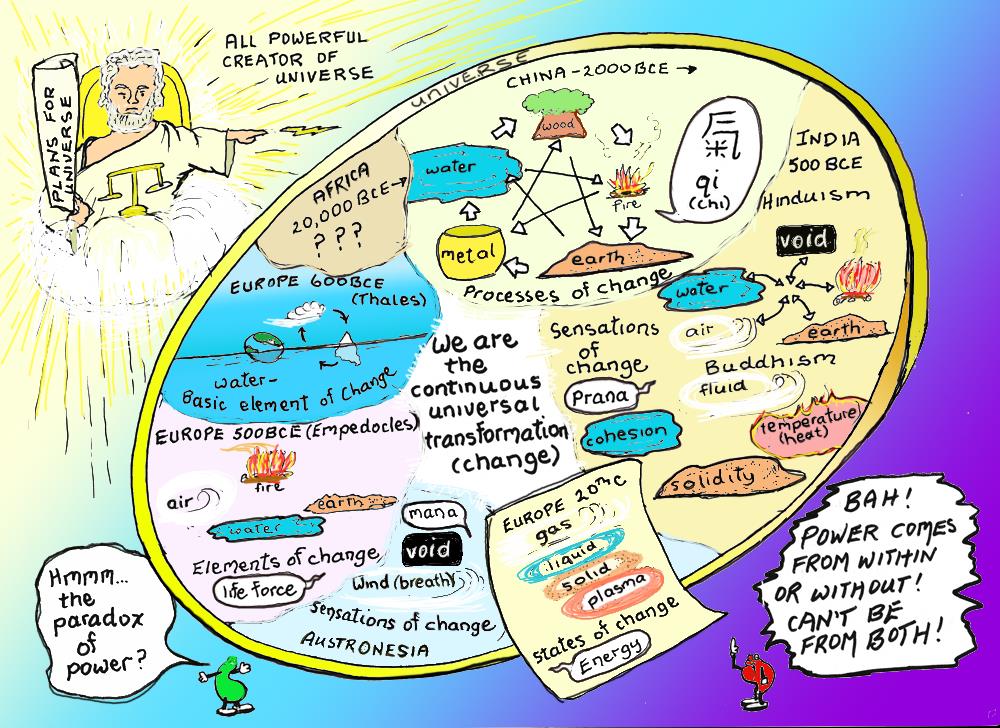 ALL POWERFUL
CREATOR OF
UNIVERSE
PLANS FOR
UNIVERSE
UNIVERSE
CHINA-2000BCE →
wood
water
fire
氣
qi
(chi)
metal
earth
Processes of change
AFRICA
20,000BCE→
???
INDIA
500BCE
Hinduism
void
water
air
earth
Buddhism
fluid
Sensations
of
change
Prana
cohesion
temperature
(heat)
solidity
EUROPE 600BCE
(Thales)
water-
Basic element of Change
We are
the
continuous
universal
transformation
(change)
EUROPE 500BCE (Empedocles)
fire
air
earth
water
Elements of change
life force
mana
void
Wind (breath)
sensations of change
AUSTRONESIA
EUROPE 20THC
gas
liquid
solid
plasma
states of change
Energy
Hmmm...
the
paradox
of
power?
BAH!
POWER COMES
FROM WITHIN
OR WITHOUT!
CAN'T BE
FROM BOTH!